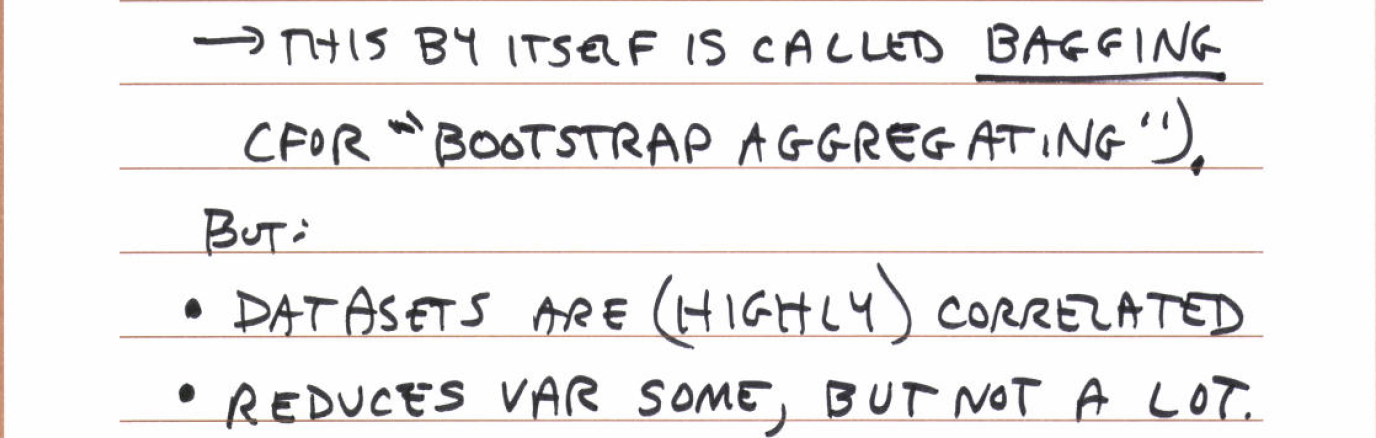 → THIS BY ITSELF IS CALLED BAGGING
(FOR "BOOTSTRAP AGGREGATING").
BUT:
• DATASETS ARE (HIGHLY) CORRELATED
• REDUCES VAR SOME, BUT NOT A LOT.